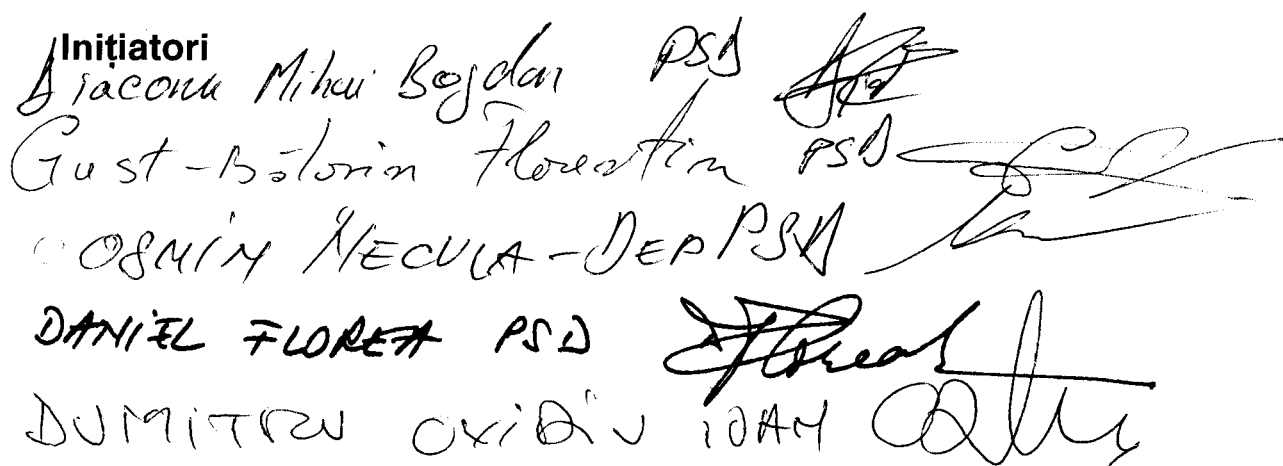 Inițiatori
Diaconu Mihai Bogdan PSD
Gust-Bălosin Florentin PSD
COSMIN NECULA-DEP PSD
DANIEL FLOREA PSD
DUMITRU OVIDIU IOAN